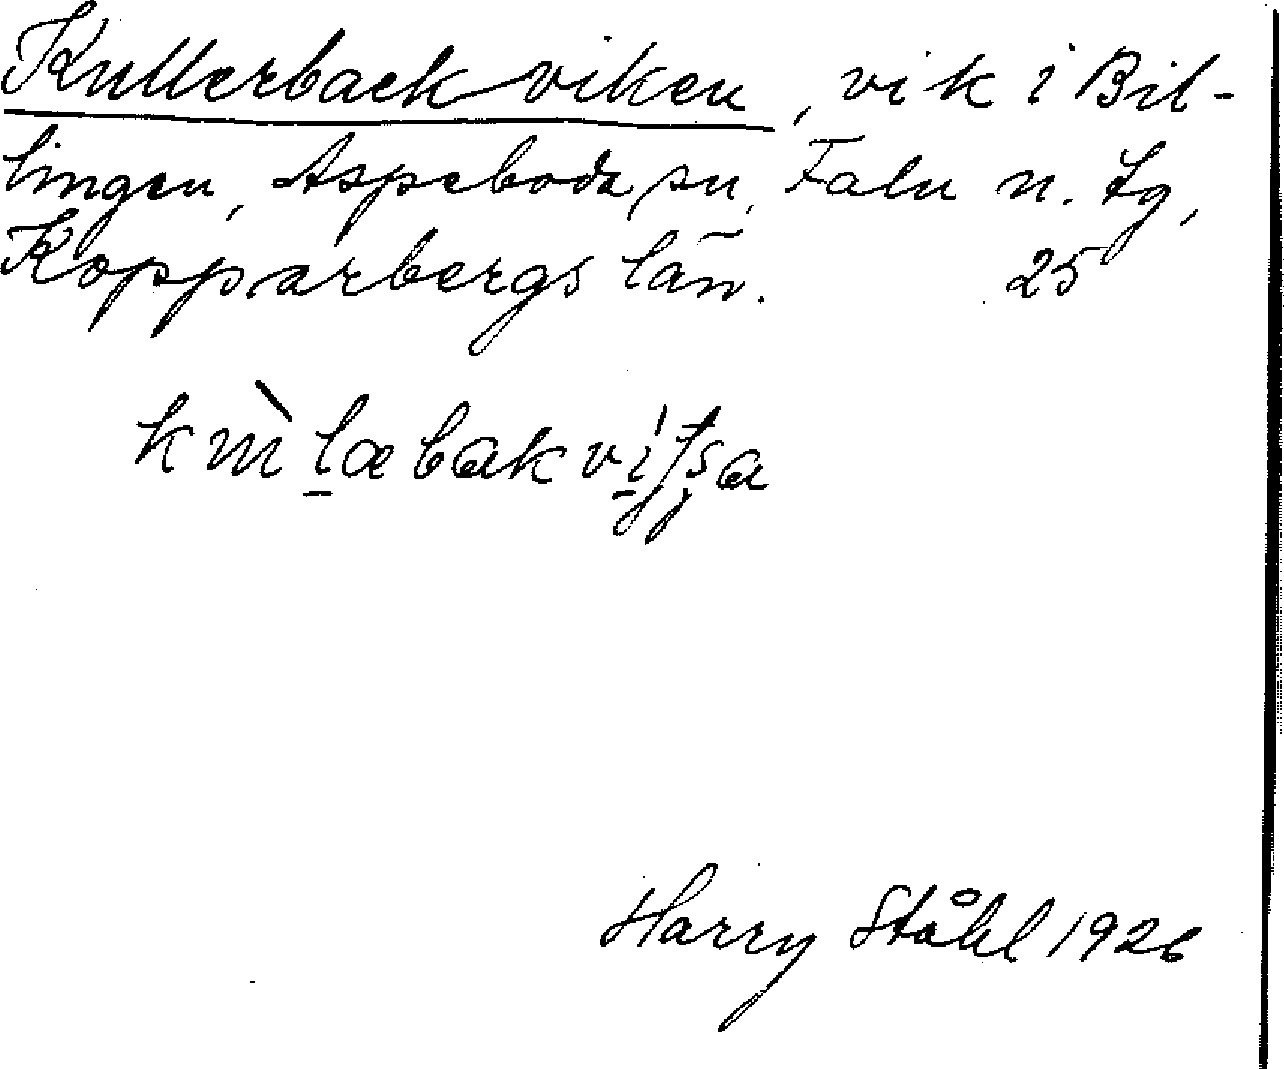 Kullerbackviken, vik i Bil-
lingen, Aspeboda sn, Falu n. tg,
Kopparbergs län. 25
Harry Ståhl 1926